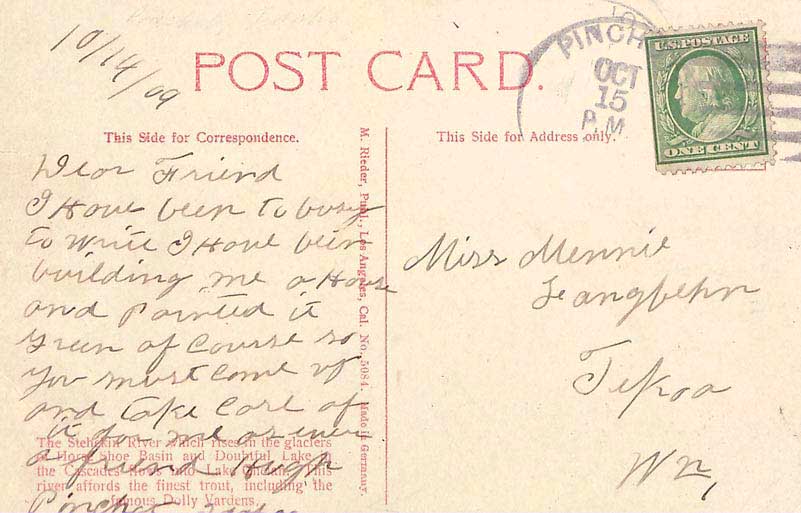 10/14/09
POST CARD.
PINCH
OCT
15
P.M
U.S. POSTAGE
ONE CENT
This Side for Correspondence.
This Side for Address only.
Dear Friend
I Have been to busy
to write I Have been
building me a House
and Painted it
Green of Course so
you must come up
and take Care of
it for me as ever
a friend Hugh
The Stehekin River which rises in the glaciers
of Horse Shoe Basin and Doubtful Lake in
the Cascades flows into Lake
river affords the finest trout, including the
famous Dolly Vardens.
M. Rieder, Publ., Los Angeles, Cal. No. 5084. Made in Germany.
Miss Mennie
Langbehn
Tekoa
Wn,